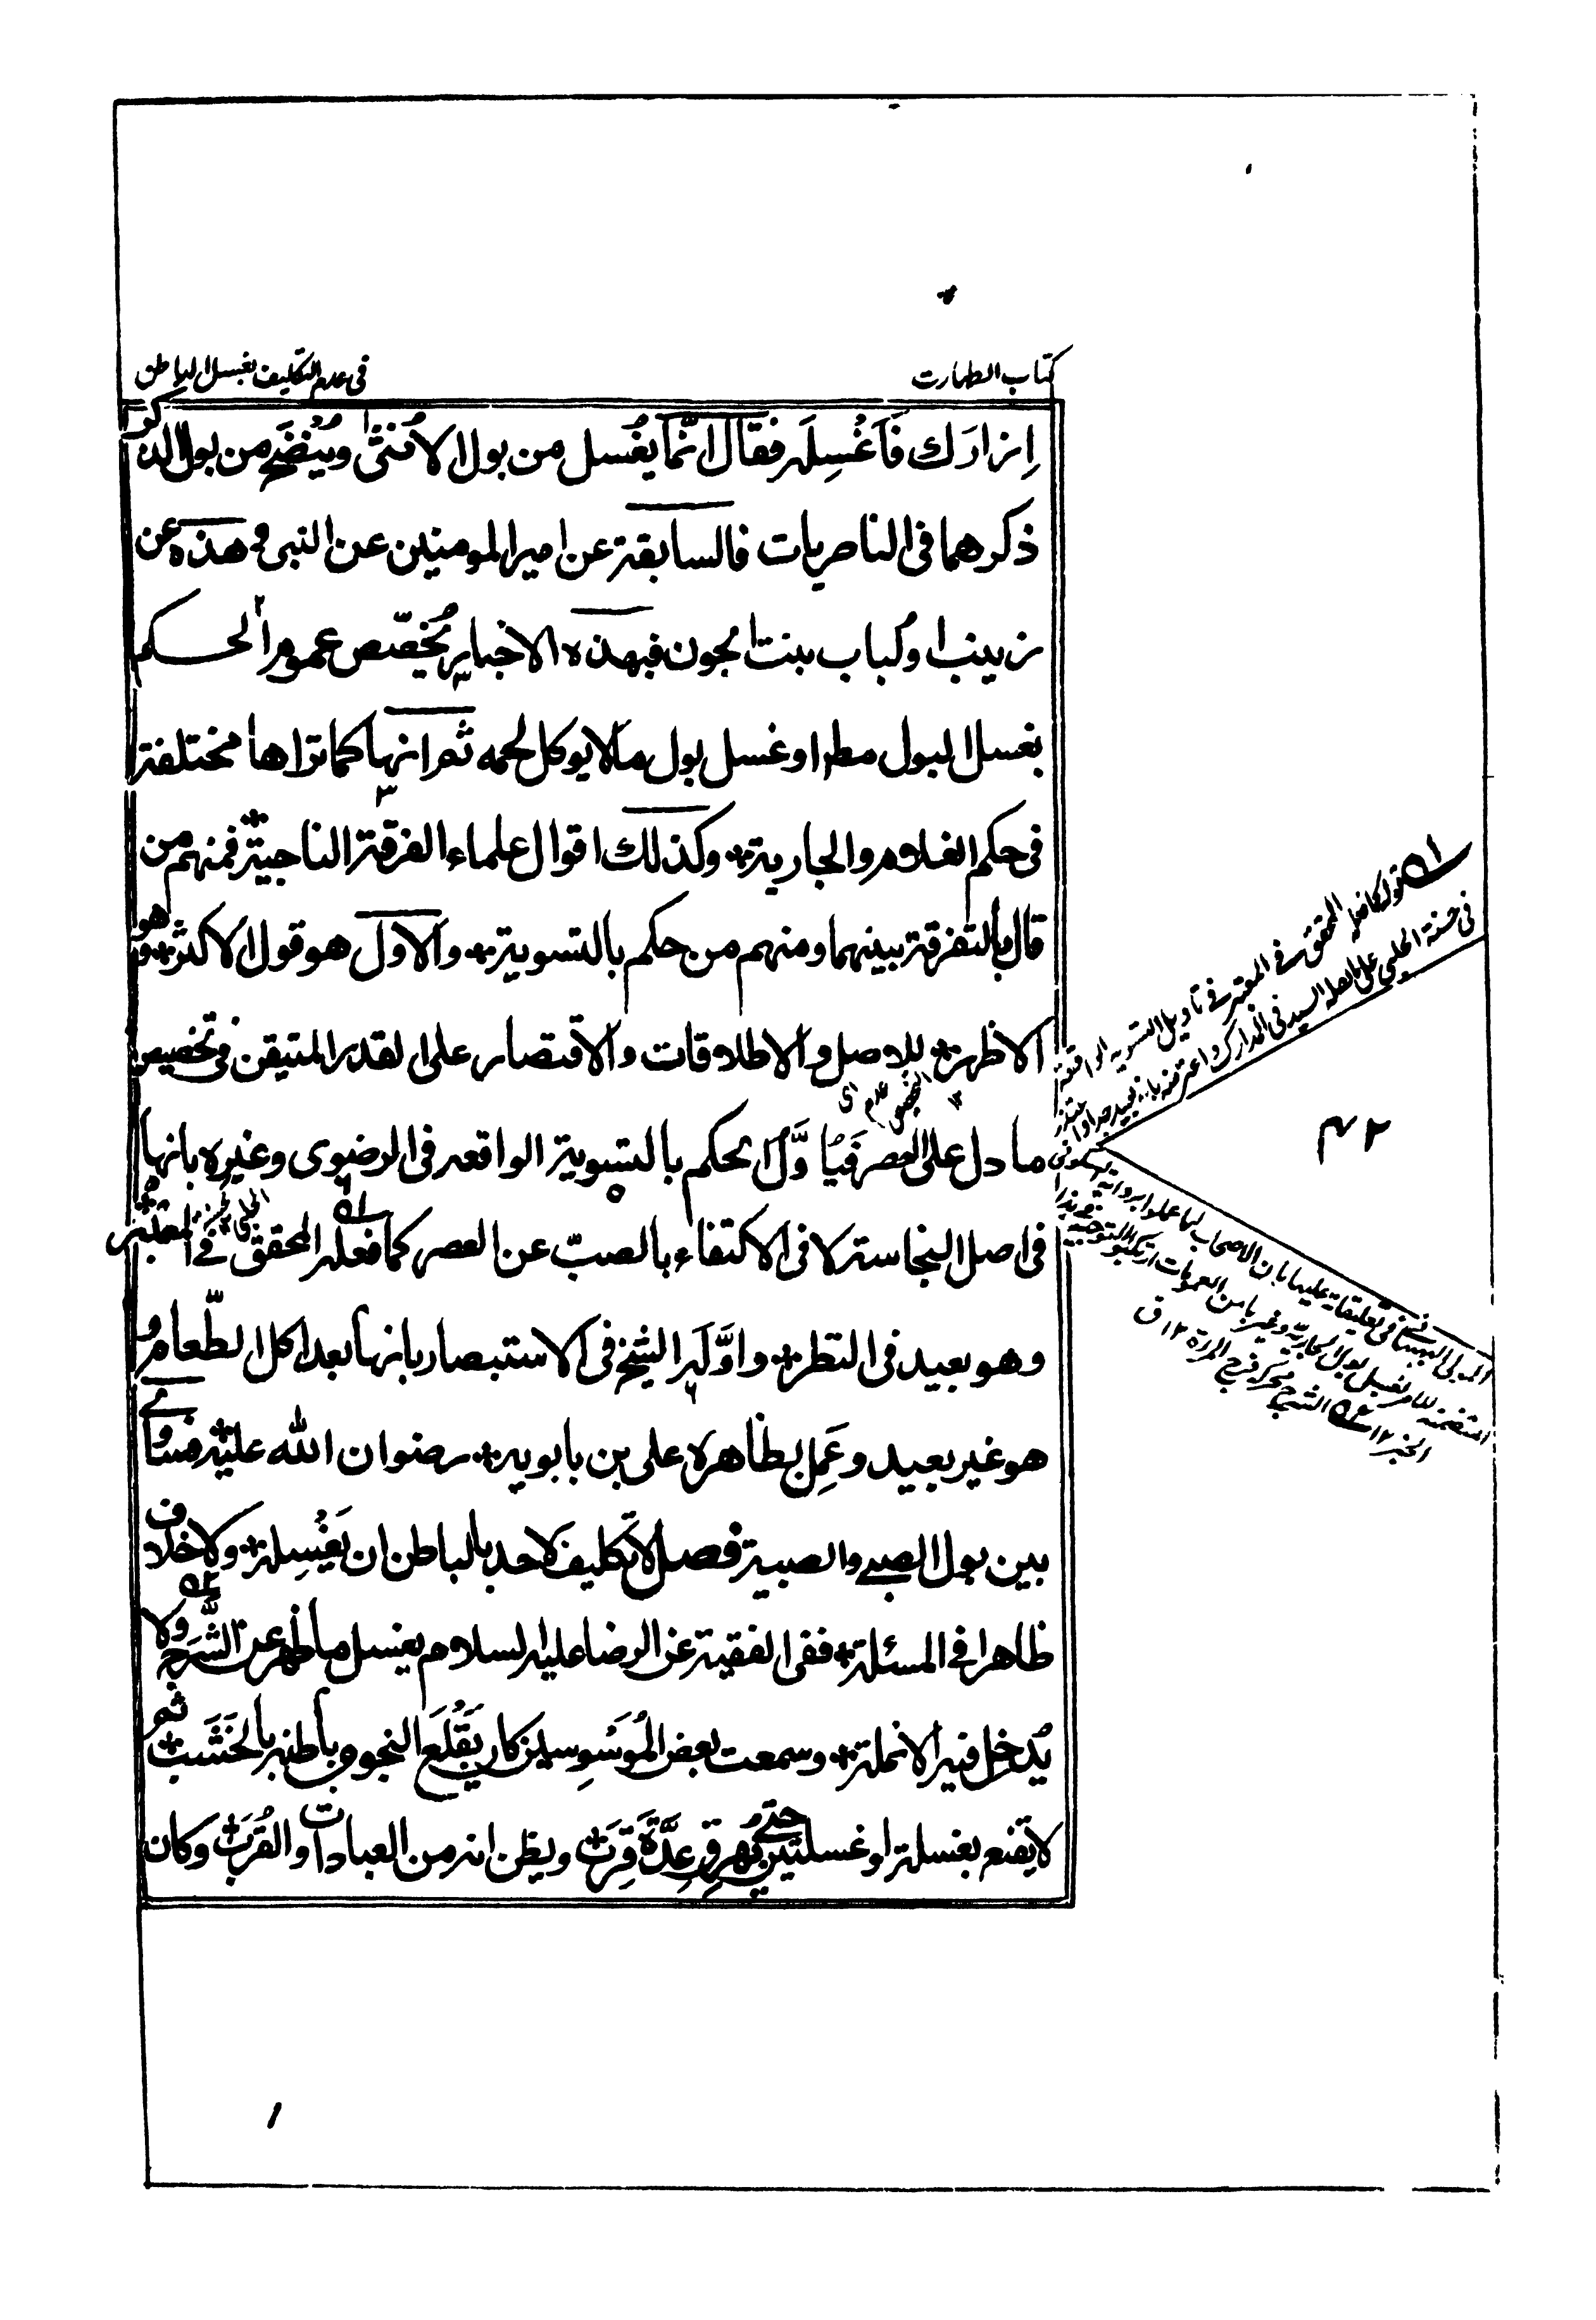 كتاب الطهارت
فى عدم التكليف بغسل الباطن
اِزارَك فَاَغْسِلَه فقال انَّما يغُسل من بول الاُنثىٰ ويُنْضَحُ من بول الذكر
ذكرهما فى الناصريات فالسابقة عن امير المومنين عن النبى و هذه عن
زينب او لُباب بنت الجون فبهذه الاخبار يُخصّص عموم الحكم
بغسل البول مطرا وغسل بول مالا يوكل لحمه ثم انها كما تراها مختلفة
فى حكم الغلام والجارية وكذلك اقوال علماء الفرقة الناجية فمنهم من
قال بالتفرقة بينهما ومنهم من حكم بالتسوية والاول هو قول الاكثر وهو
الاظهر للاصل والاطلاقات والاقتصار على القدر المتيقن فى تخصيص
ما دل على العصر فيُاوَّل الحكم بالتسوية الواقعه فى الرضوى وغيره بانها
فى اصل النجاسة لا فى الاكتفاء بالصبّ عن العصر كما فعله المحقق فى المعتبر
وهو بعيد فى النظر واوَّلَه الشيخ فى الاستبصار بانها بعد اكل الطّعام و
هو غير بعيد وعَمِل بظاهره على بن بابويه رضوان الله عليه فساوى
بين بول الصبى والصبية فصل لا تكليف لاحد بالباطن ان يَغْسِله ولا خلاف
ظاهرا فى المسئلة ففى الفقيه عن الرضا عليه السلام يغسل ما ظهر عن الشَّرَج ولا
يُدخل فيه الانملة وسمعت بعض المُوَسْوِسين كان يَقْلَع النجو و باطنه بالخَشَب ثم
لا يقنع بغسلة او غسلتين حتى يُهرِق عِدَّةَ قِرَب ويظن انه من العبادات والقُرَب وكان
قوله كما فعله المحقق فى المعتبر فى تاويل التسوية الواقعة
فى حسنة الحلبى على ما نقله السيد فى المدارك واعترضه بانه بعيد جدا
٤٢